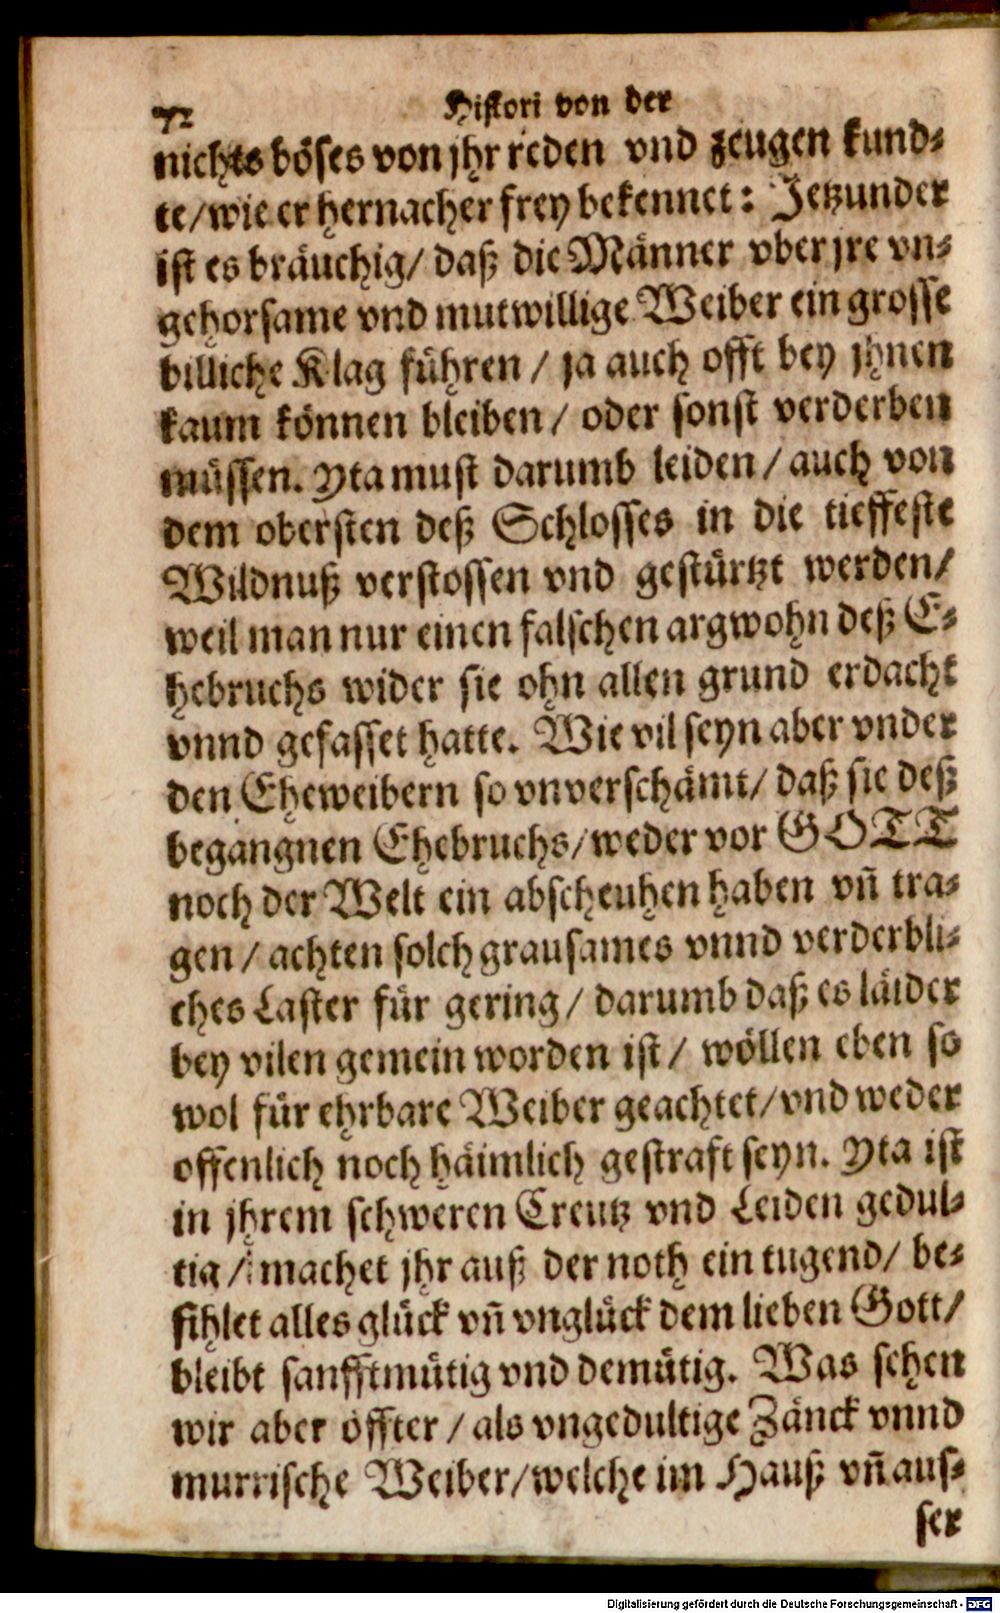 72 Histori von der
nichts böses von jhr reden vnd zeugen kund-
te/wie er hernacher frey bekennet: Jetzunder
ist es bräuchig/ daß die Männer vber jre vn-
gehorsame vnd mutwillige Weiber ein grosse
billiche Klag führen / ja auch offt bey jhnen
kaum können bleiben / oder sonst verderben
müssen. Yta must darumb leiden / auch von
dem obersten deß Schlosses in die tieffeste
Wildnuß verstossen vnd gestürtzt werden/
weil man nur einen falschen argwohn deß E-
hebruchs wider sie ohn allen grund erdacht
vnnd gefasset hatte. Wie vil seyn aber vnder
den Eheweibern so vnverschämt/ daß sie deß
begangnen Ehebruchs/weder vor GOTT
noch der Welt ein abscheuhen haben vñ tra-
gen / achten solch grausames vnnd verderbli-
ches Laster für gering / darumb daß es läider
bey vilen gemein worden ist / wöllen eben so
wol für ehrbare Weiber geachtet/vnd weder
offenlich noch häimlich gestraft seyn. Yta ist
in jhrem schweren Creutz vnd Leiden gedul-
tig / machet jhr auß der noth ein tugend/ be-
fihlet alles glück vñ vnglück dem lieben Gott/
bleibt sanfftmütig vnd demütig. Was sehen
wir aber öffter / als vngedultige Zänck vnnd
murrische Weiber/welche im Hauß vñ aus-
ser
Digitalisierung gefördert durch die Deutsche Forschungsgemeinschaft - DFG